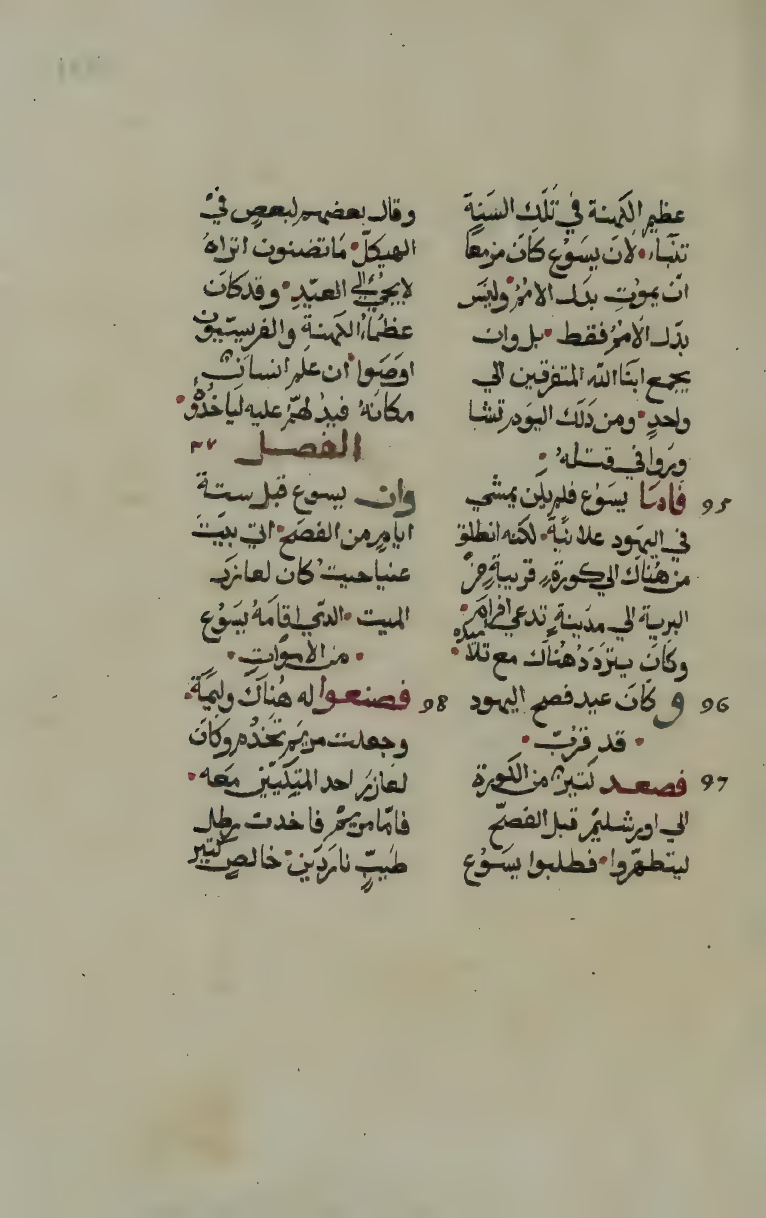 عظيم الكهنة في تلك السنة
تنبّاء لان يسوع كان مزمعا
ان يموت بدل الامم وليس
بدل الامم فقط بل وان
يجمع ابنا الله المتفرقين الي
واحد ومن دلك اليوم تشا
وروا في قتله
95 فاما يسوع فلم يكن يمشي
في اليهود علانية لكنه انطلق
من هناك الي كورة قريبة من
البرية الي مدينة تدعي افرام
وكان يتردد هناك مع تلاميده
96 و كان عيد فصح اليهود
قد قرب
97 فصعد كتير من الكورة
الي اورشليم قبل الفصح
ليتطهروا فطلبوا يسوع
وقال بعضهم لبعض في
الهيكل ما تضنون اتراه
لا يجي الي العيد وقد كان
عظماء الكهنة والفرسيون
اوصوا ان علم انسان
مكانه فيدلهم عليه لياخدوه
الفصل ٢٧
وان يسوع قبل ستة
ايام من الفصح اتي بيت
عنيا حيت كان لعازر
الميت الدي اقامه يسوع
من الاموات
98 فصنعوا له هناك وليمة
وجعلت مريم تخدم وكان
لعازر احد المتكيين معه
فاما مريم فاخدت رطل
طيب ناردين خالص كتير